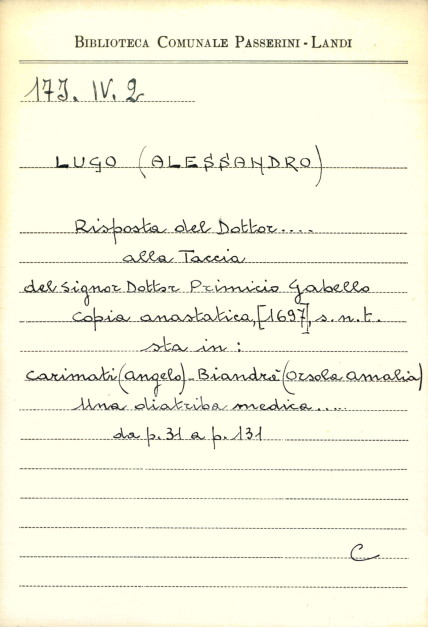 BIBLIOTECA COMUNALE PASSERINI - LANDI
17J. IV. 2
LUGO (ALESSANDRO)
Risposta del Dottor....
alla Taccia
del Signor Dottor Primicio Gabello
copia anastatica, [1697], s.n.t.
sta in :
Carimati (Angelo) - Biandrà (Orsola Amalia)
Una diatriba medica.....
da p. 31 a p. 131
C